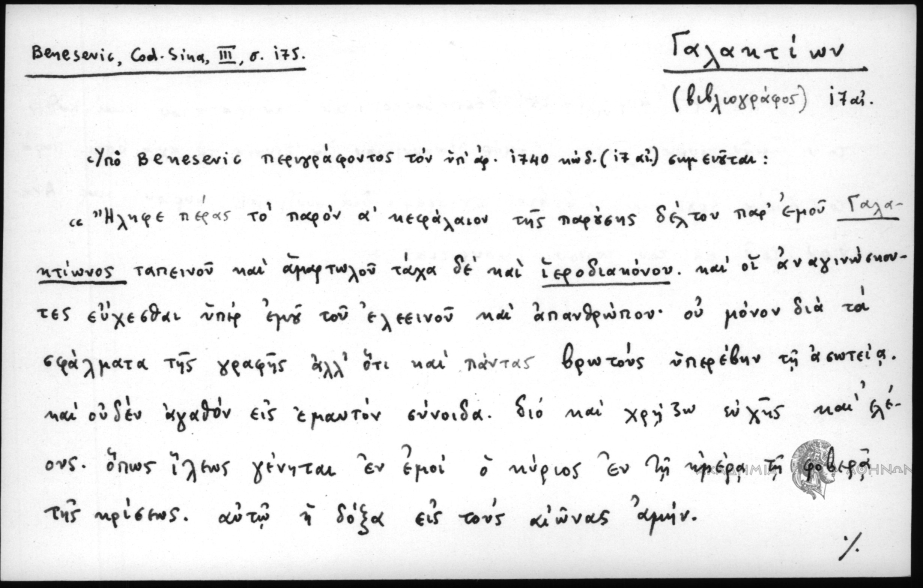 Benesevic, Cod. Sina, III, σ. 175.
Γαλακτίων
(βιβλιογράφος) 17 αἰ.
Ὑπὸ Benesevic περιγράφοντος τὸν ὑπ' ἀρ. 1740 κώδ. (17 αἰ) σημειοῦται:
«Ἤληφε πέρας τὸ παρὸν α' κεφάλαιον τῆς παρούσης δέλτου παρ' ἐμοῦ Γαλα-
κτίωνος ταπεινοῦ καὶ ἁμαρτωλοῦ τάχα δὲ καὶ ἱεροδιακόνου. καὶ οἱ ἀναγινώσκον-
τες εὔχεσθαι ὑπὲρ ἐμοῦ τοῦ ἐλεεινοῦ καὶ ἀπανθρώπου· οὐ μόνον διὰ τὰ
σφάλματα τῆς γραφῆς ἀλλ' ὅτι καὶ πάντας βρωτοὺς ὑπερέβην τῇ ἀσωτείᾳ.
καὶ οὐδὲν ἀγαθὸν εἰς ἐμαυτὸν σύνοιδα. διὸ καὶ χρῄζω εὐχῆς καὶ ἐλέ-
ους. ὅπως ἵλεως γένηται ἐν ἐμοὶ ὁ κύριος ἐν τῇ ἡμέρᾳ τῇ φοβερᾷ
τῆς κρίσεως. αὐτῷ ἡ δόξα εἰς τοὺς αἰῶνας ἀμήν.
·/.